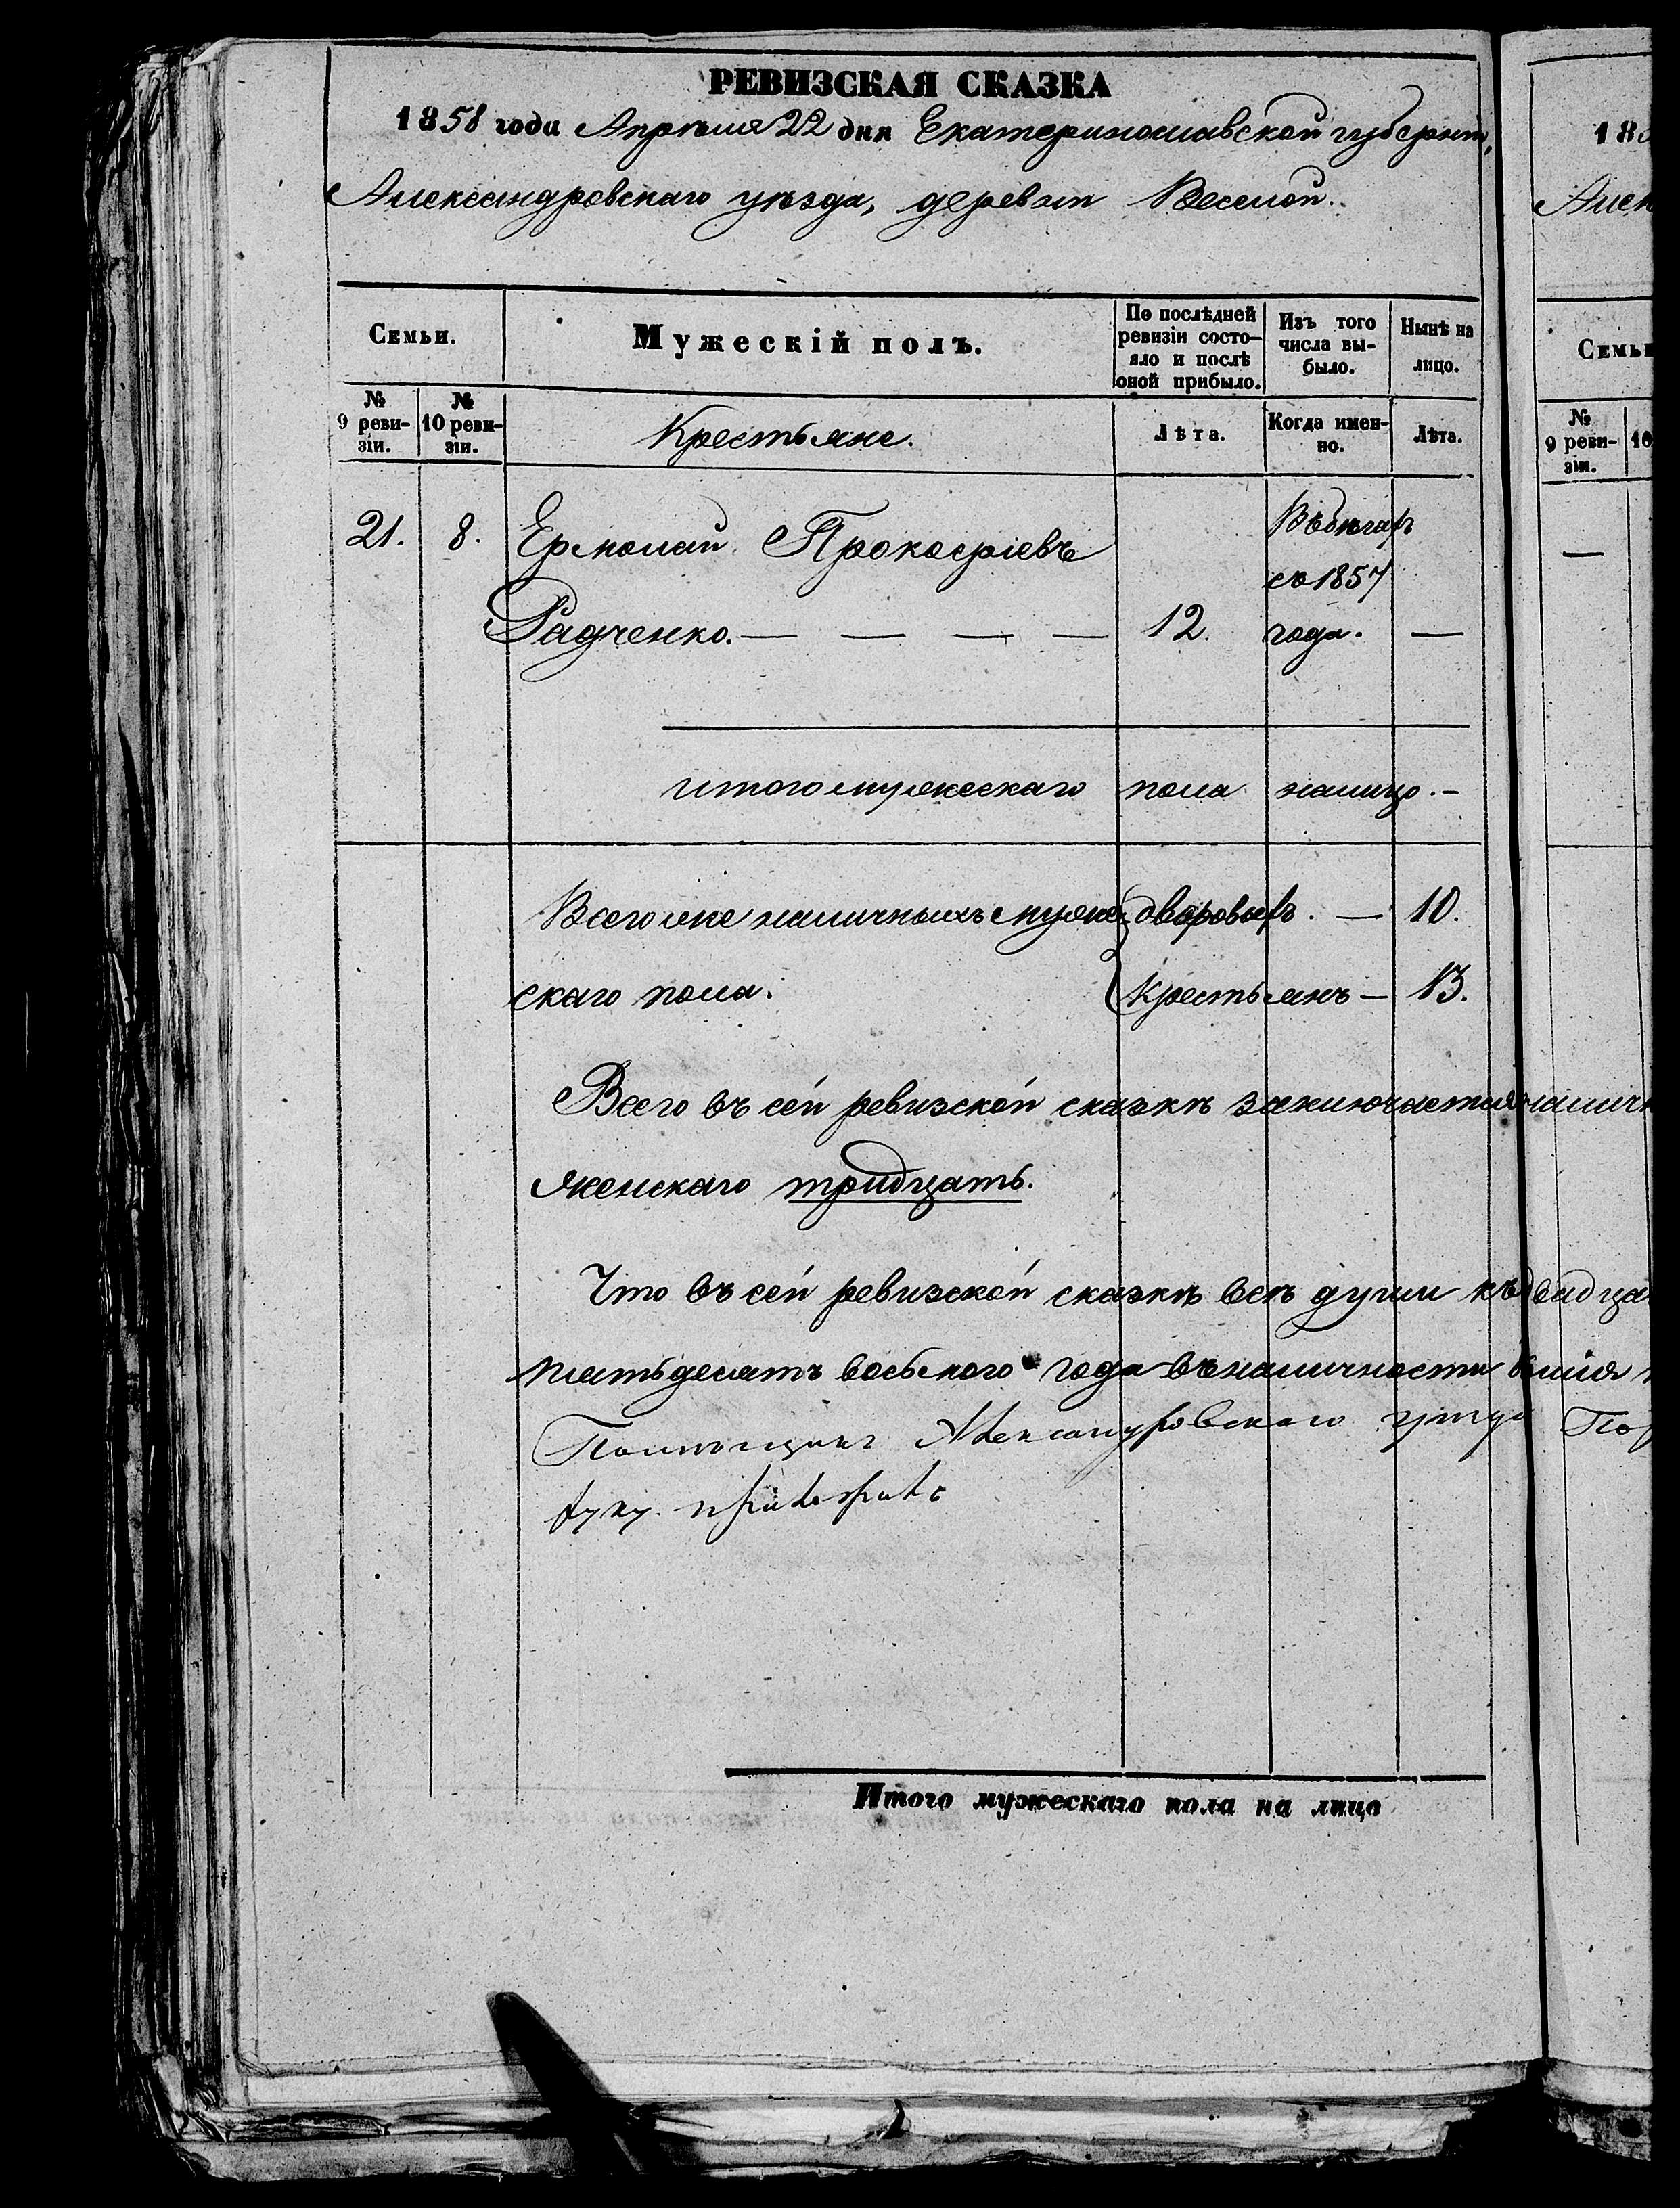 РЕВИЗСКАЯ СКАЗКА
1858 года Апрѣля 22 дня Екатеринославской губерніи,
Александровскаго уѣзда, деревни Веселой.
Семьи.
Мужескій полъ.
По послѣдней ревизіи состо-
яло и послѣ
оной прибыло.
Изъ того
числа вы-
было.
Нынѣ на
лицо.
№
9 реви-
зіи.
№
10 реви-
зіи.
Крестьяне.
Лѣта.
Когда имен-
но.
Лѣта.
21. 8. Ермолай Прокофіевъ
Въ бѣгахъ
съ 1857
Радченко. — — — — 12. года. —
Итого мужескаго пола налицо. —
Всего же наличныхъ муже дворовыхъ. — 10.
скаго пола. Крестьянъ — 13.
Всего въ сей ревизской сказкѣ заключается наличн
женскаго тридцать.
Что въ сей ревизской сказкѣ всѣ души къ двидца
пятьдесятъ восьмого года въ наличности
Помѣщикъ Александровскаго уѣзда
руку приложилъ
Итого мужескаго пола на лицо
18
Алек
Семьи
№
9 реви-
зіи.
10
—